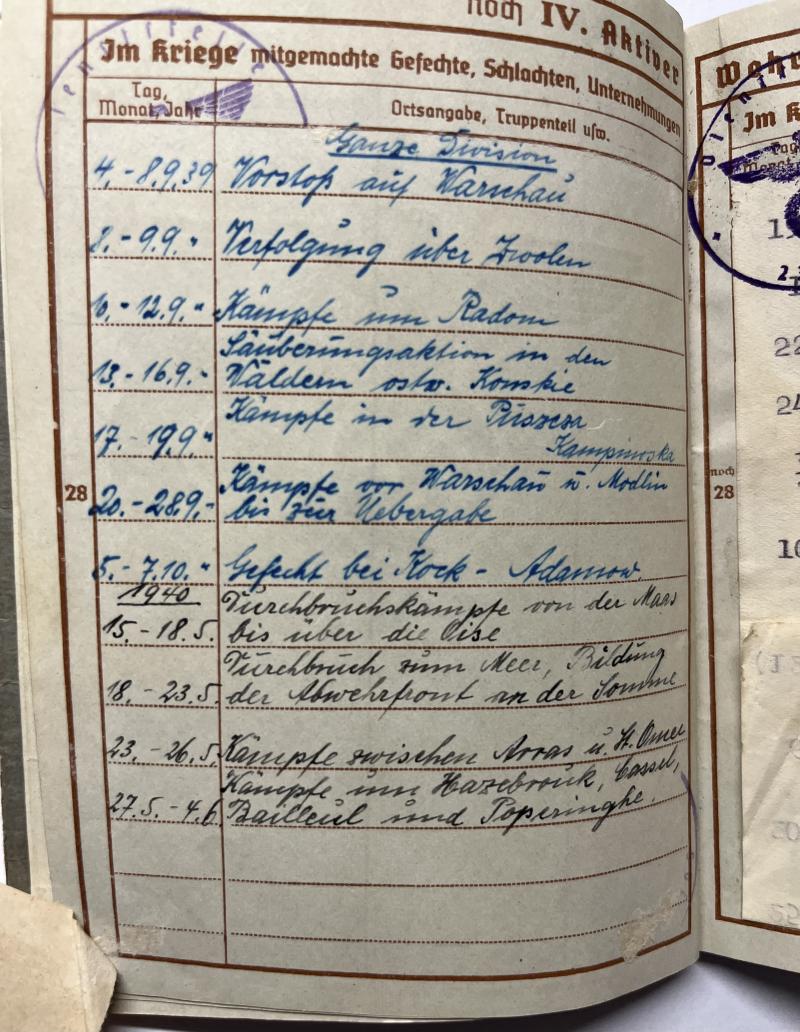 noch IV. Aktiver
Im Kriege mitgemachte Gefechte, Schlachten, Unternehmungen
Tag, Monat, Jahr
Ortsangabe, Truppenteil usw.
Ganze Division
4.-8.9.39 Vorstoß auf Warschau
8.-9.9. " Verfolgung über Zwolen
10.-12.9. " Kämpfe um Radom
Säuberungsaktion in den
13.-16.9.- Wäldern ostw. Konskie
Kämpfe in der Puszcza
17.-19.9. " Kampinoska
28
Kämpfe vor Warschau u. Modlin
20.-28.9.- bis zur Uebergabe
5.-7.10. " Gefecht bei Kock - Adamow.
1940 Durchbruchskämpfe von der Maas
15.-18.5. bis über die Oise
Durchbruch zum Meer, Bildung
18.-23.5. der Abwehrfront an der Somme
23.-26.5. Kämpfe zwischen Arras u. St. Omer
Kämpfe um Hazebrouk, Cassel,
27.5.-4.6. Bailleul und Poperinghe.
noch
28
22
24
10